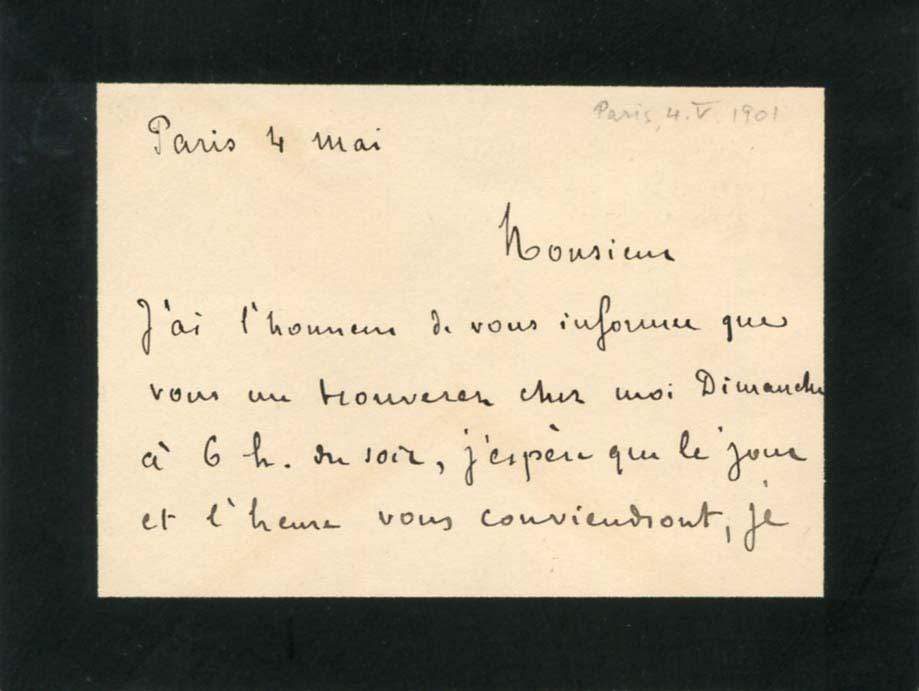 Paris, 4. V. 1901
Paris 4 mai
Monsieur
J'ai l'honneur de vous informer que
vous me trouverez chez moi Dimanche
à 6 h. du soir, j'espère que le jour
et l'heure vous conviendront, je